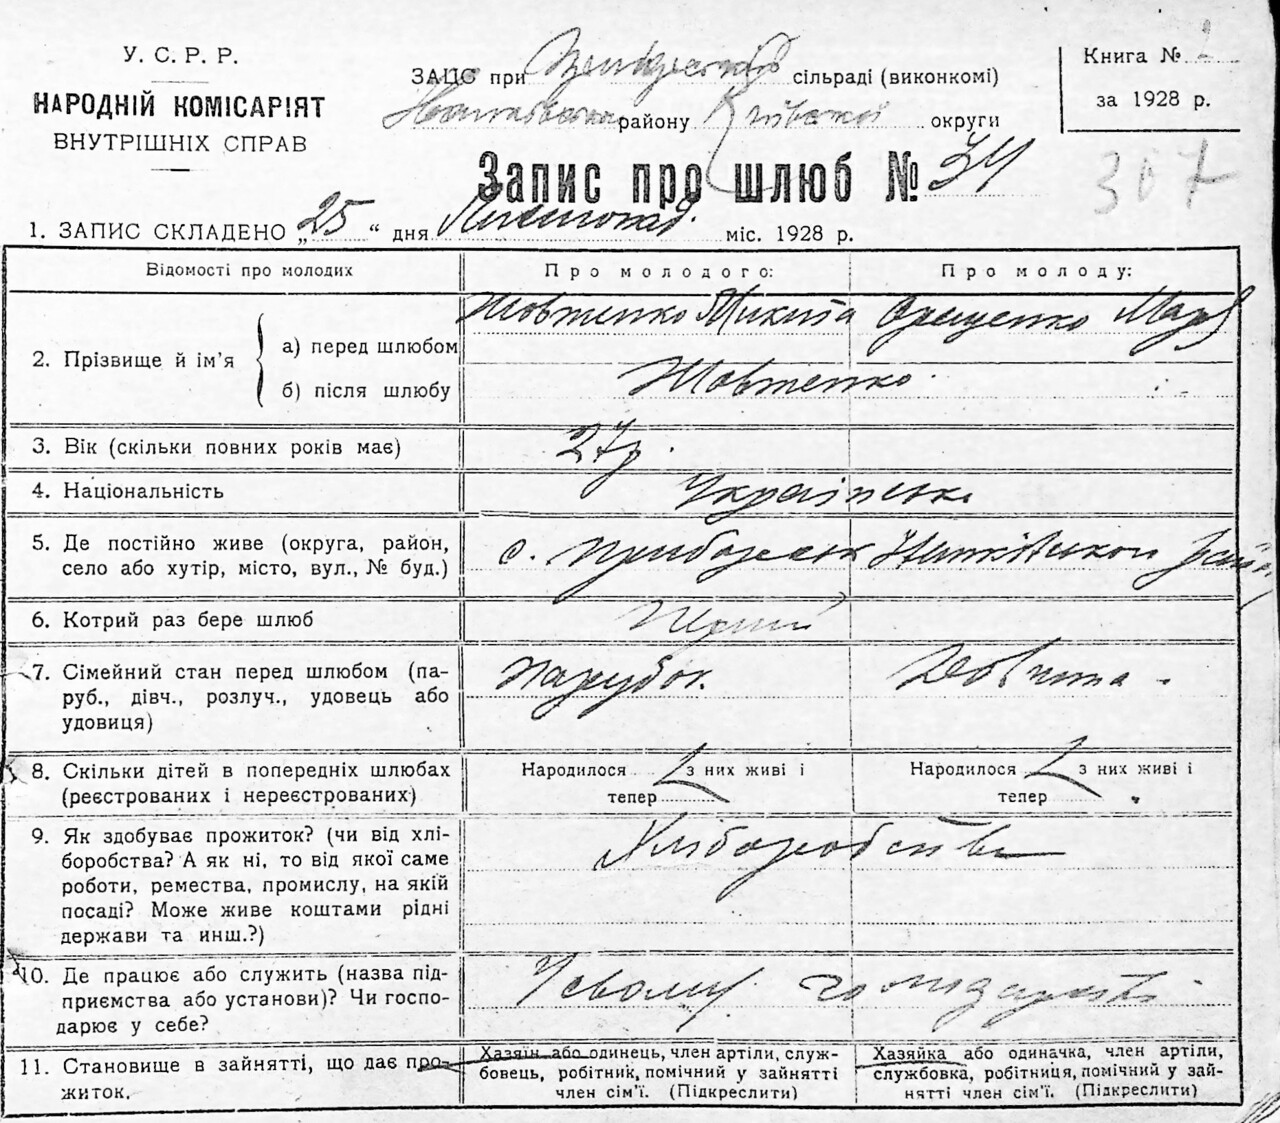 У. С. Р. Р.
НАРОДНІЙ КОМІСАРІЯТ
ВНУТРІШНІХ СПРАВ
ЗАЦС при сільраді (виконкомі)
району Київської округи
Книга №
за 1928 р.
Запис про шлюб № 34
307
1. ЗАПИС СКЛАДЕНО „25“ дня Листопад. міс. 1928 р.
Відомості про молодих
Про молодого:
Про молоду:
2. Прізвище й ім’я
а) перед шлюбом
Жовтенко Микита
Марія
б) після шлюбу
Жовтенко
3. Вік (скільки повних років має)
27р.
4. Національність
Українські
5. Де постійно живе (округа, район,
село або хутір, місто, вул., № буд.)
с.
6. Котрий раз бере шлюб
Перший
7. Сімейний стан перед шлюбом (па-
руб., дівч., розлуч., удовець або
удовиця)
парубок.
Дівчина -
8. Скільки дітей в попередніх шлюбах
(реєстрованих і нереєстрованих)
Народилося з них живі і
тепер
Народилося з них живі і
тепер
9. Як здобуває прожиток? (чи від хлі-
боробства? А як ні, то від якої саме
роботи, ремества, промислу, на якій
посаді? Може живе коштами рідні
держави та инш.?)
Хліборобство
10. Де працює або служить (назва під-
приємства або установи)? Чи госпо-
дарює у себе?
У своїму господарстві
11. Становище в зайнятті, що дає про-
житок.
Хазяїн або одинець, член артіли, служ-
бовець, робітник, помічний у зайнятті
член сім’ї. (Підкреслити)
Хазяйка або одиначка, член артіли,
службовка, робітниця, помічний у зай-
нятті член сім’ї. (Підкреслити)